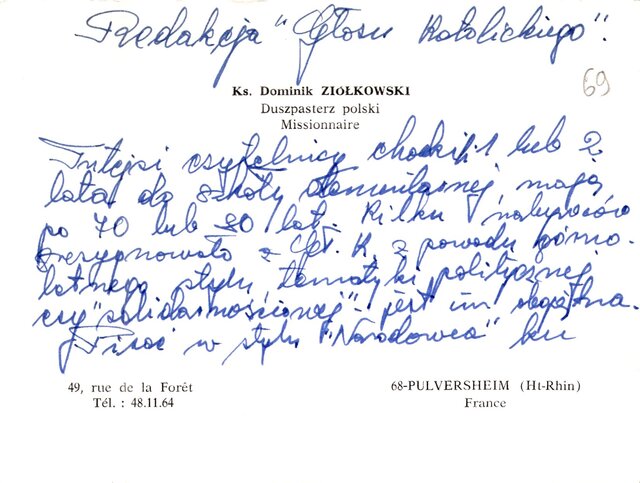 Redakcja "Głosu Katolickiego".
69
Ks. Dominik ZIÓŁKOWSKI
Duszpasterz polski
Missionnaire
Tutejsi czytelnicy chodzili 1 lub 2
lata do szkoły elementarnej, mają
po 70 lub 80 lat. Kilku nabywców
zrezygnowało z Gł. K. z powodu górno-
lotnego stylu, tematyki politycznej
czy "solidarnościowej" - jest im obojętna.
Pisać w stylu "Narodowca" ku
49, rue de la Forêt
Tél. : 48.11.64
68-PULVERSHEIM (Ht-Rhin)
France